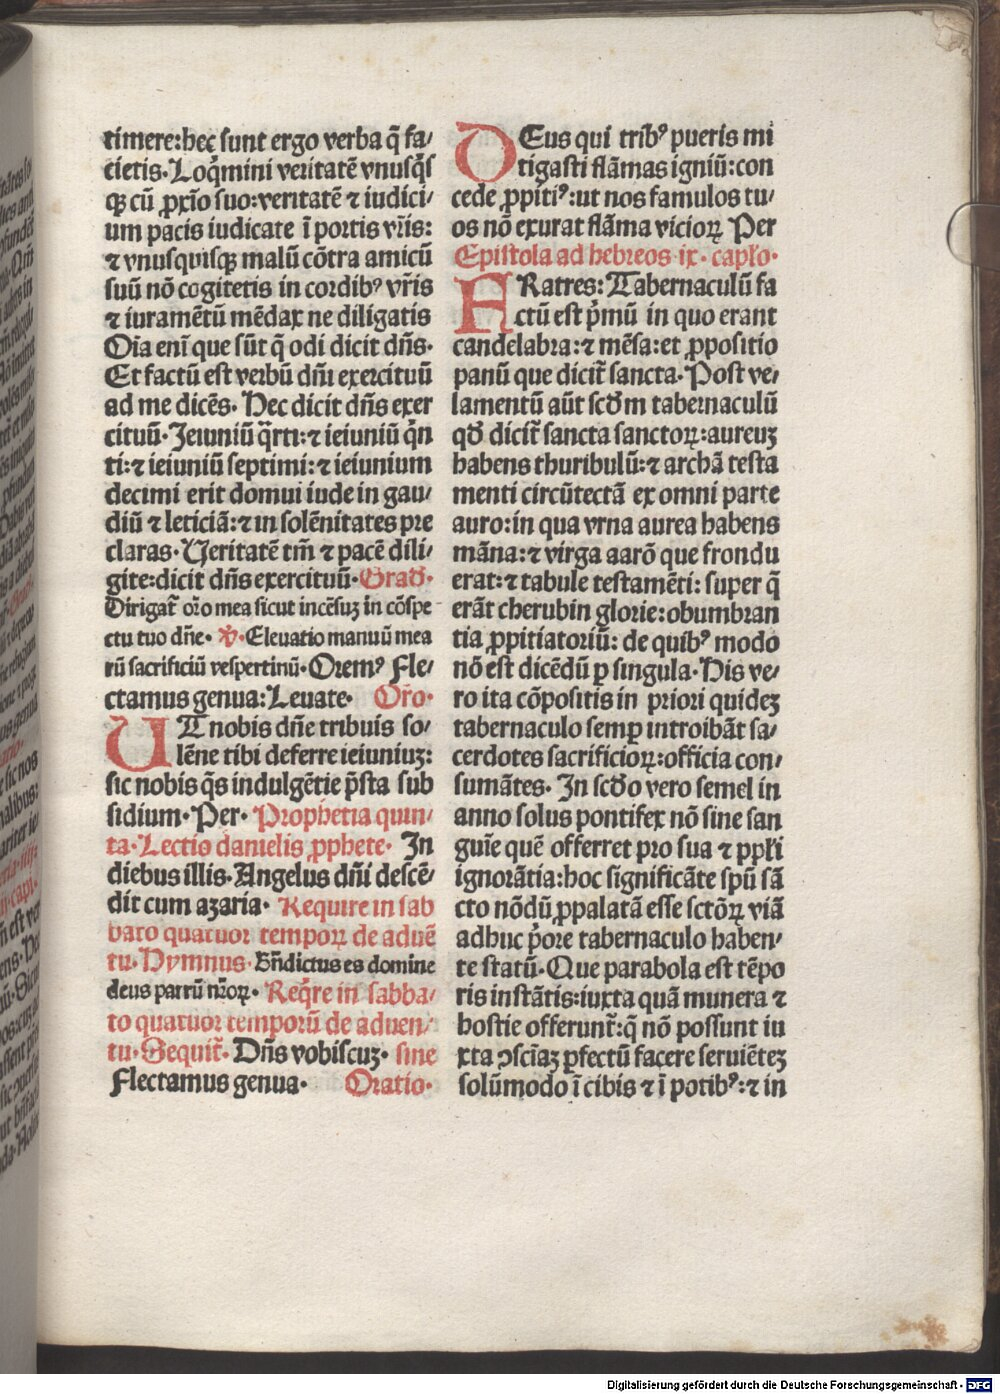 timere:hec sunt ergo verba q̃ fa/
cietis·Loq̃mini veritatẽ vnusq̃s
qꝫ cũ ꝓxĩo suo:veritatẽ ⁊ iudici/
um pacis iudicate ĩ portis vr̃is:
⁊ vnusquisqꝫ malũ cõtra amicũ
suũ nõ cogitetis in cordibꝰ vr̃is
⁊ iuramẽtũ mẽdax ne diligatis
Oĩa enĩ que sũt q̃ odi dicit dñs·
Et factũ est verbũ dñi exercituũ
ad me dicẽs· Hec dicit dñs exer
cituũ·Jeiuniũ q̃rti:⁊ ieiuniũ q̃n
ti:⁊ ieiuniũ septimi:⁊ ieiunium
decimi erit domui iude in gau/
diũ ⁊ leticiã:⁊ in solẽnitates pre
claras·Veritatẽ tm̃ ⁊ pacẽ dili/
gite:dicit dñs exercituũ·Grad̃·
Dirigat̃ or̃o mea sicut incẽsuꝫ in cõspe
ctu tuo dñe· ℣·Eleuatio manuũ mea
rũ sacrificiũ vespertinũ·Oremꝰ Fle/
ctamus genua:Leuate· Or̃o·
UT nobis dñe tribuis so/
lẽne tibi deferre ieiuniuꝫ:
sic nobis q̃s indulgẽtie p̃sta sub
sidium·Per· Prophetia quin/
ta·Lectio danielis ꝓphete· In
diebus illis·Angelus dñi descẽ/
dit cum azaria· Require in sab
bato quatuor temporꝝ de aduẽ
tu·Hymnus·Bñdictus es domine
deus patrũ nr̃orꝝ· Req̃re in sabba/
to quatuor temporũ de aduen/
tu·Sequit̃· Dñs vobiscuꝫ· sine
Flectamus genua· Oratio·
DEus qui tribꝰ pueris mi
tigasti flãmas igniũ:con
cede ꝓpitiꝰ:ut nos famulos tu/
os nõ exurat flãma viciorꝝ Per
Epistola ad hebreos ix· capło·
FRatres: Tabernaculũ fa
ctũ est p̃mũ in quo erant
candelabra:⁊ mẽsa:et ꝓpositio
panũ que dicit̃ sancta·Post ve/
lamentũ aũt scd̃m tabernaculũ
qd̃ dicit̃ sancta sanctorꝝ:aureuꝫ
habens thuribulũ:⁊ archã testa
menti circũtectã ex omni parte
auro:in qua vrna aurea habens
mãna:⁊ virga aarõ que frondu
erat:⁊ tabule testamẽti: super q̃
erãt cherubin glorie:obumbran
tia ꝓpitiatoriũ: de quibꝰ modo
nõ est dicẽdũ ꝑ singula·His ve/
ro ita cõpositis in priori quideꝫ
tabernaculo semꝑ introibãt sa/
cerdotes sacrificiorꝝ:officia con/
sumãtes· In scd̃o vero semel in
anno solus pontifex nõ sine san
guĩe quẽ offerret pro sua ⁊ ppłi
ignorãtia:hoc significãte spũ sã
cto nõdũ ꝓpalatã esse sctõrꝝ viã
adhuc p̃ore tabernaculo haben/
te statũ·Que parabola est tẽpo
ris instãtis:iuxta quã munera ⁊
hostie offerunt̃:q̃ nõ possunt iu
xta ↄscĩaꝫ ꝑfectũ facere seruiẽteꝫ
solũmodo ĩ cibis ⁊ ĩ potibꝰ:⁊ in
Digitalisierung gefördert durch die Deutsche Forschungsgemeinschaft · DFG